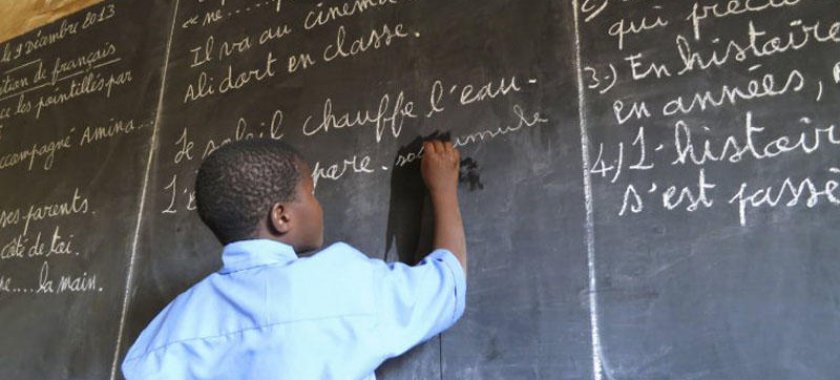 le 9 Décembre 2013
de français
ce les pointillés par
accompagné Amina...
ses parents.
côté de toi.
la main.
« ne
Il va au cinéma
Ali dort en classe.
Le soleil chauffe l'eau.
L'e pare.
qui
3.) En histoire
en années,
4) L'histoire
s'est passé